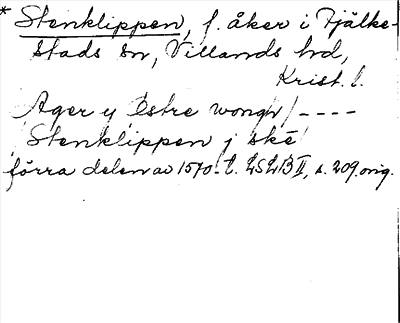 * Stenklippen, f. åker i Fjälke-
stads sn, Villands hd,
Krist. l.
Ager y Østre wongh / ----
Stenklippen j skē
förra delen av 1570-t. LSLB II, s. 209. orig.